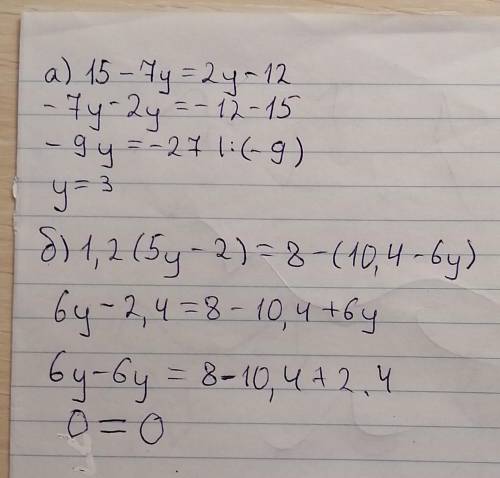 а) 15 - 7y = 2y - 12
- 7y - 2y = - 12 - 15
- 9y = - 27 |:(- 9)
y = 3
б) 1,2 (5y - 2) = 8 - (10,4 - 6y)
6y - 2,4 = 8 - 10,4 + 6y
6y - 6y = 8 - 10,4 + 2.4
0 = 0